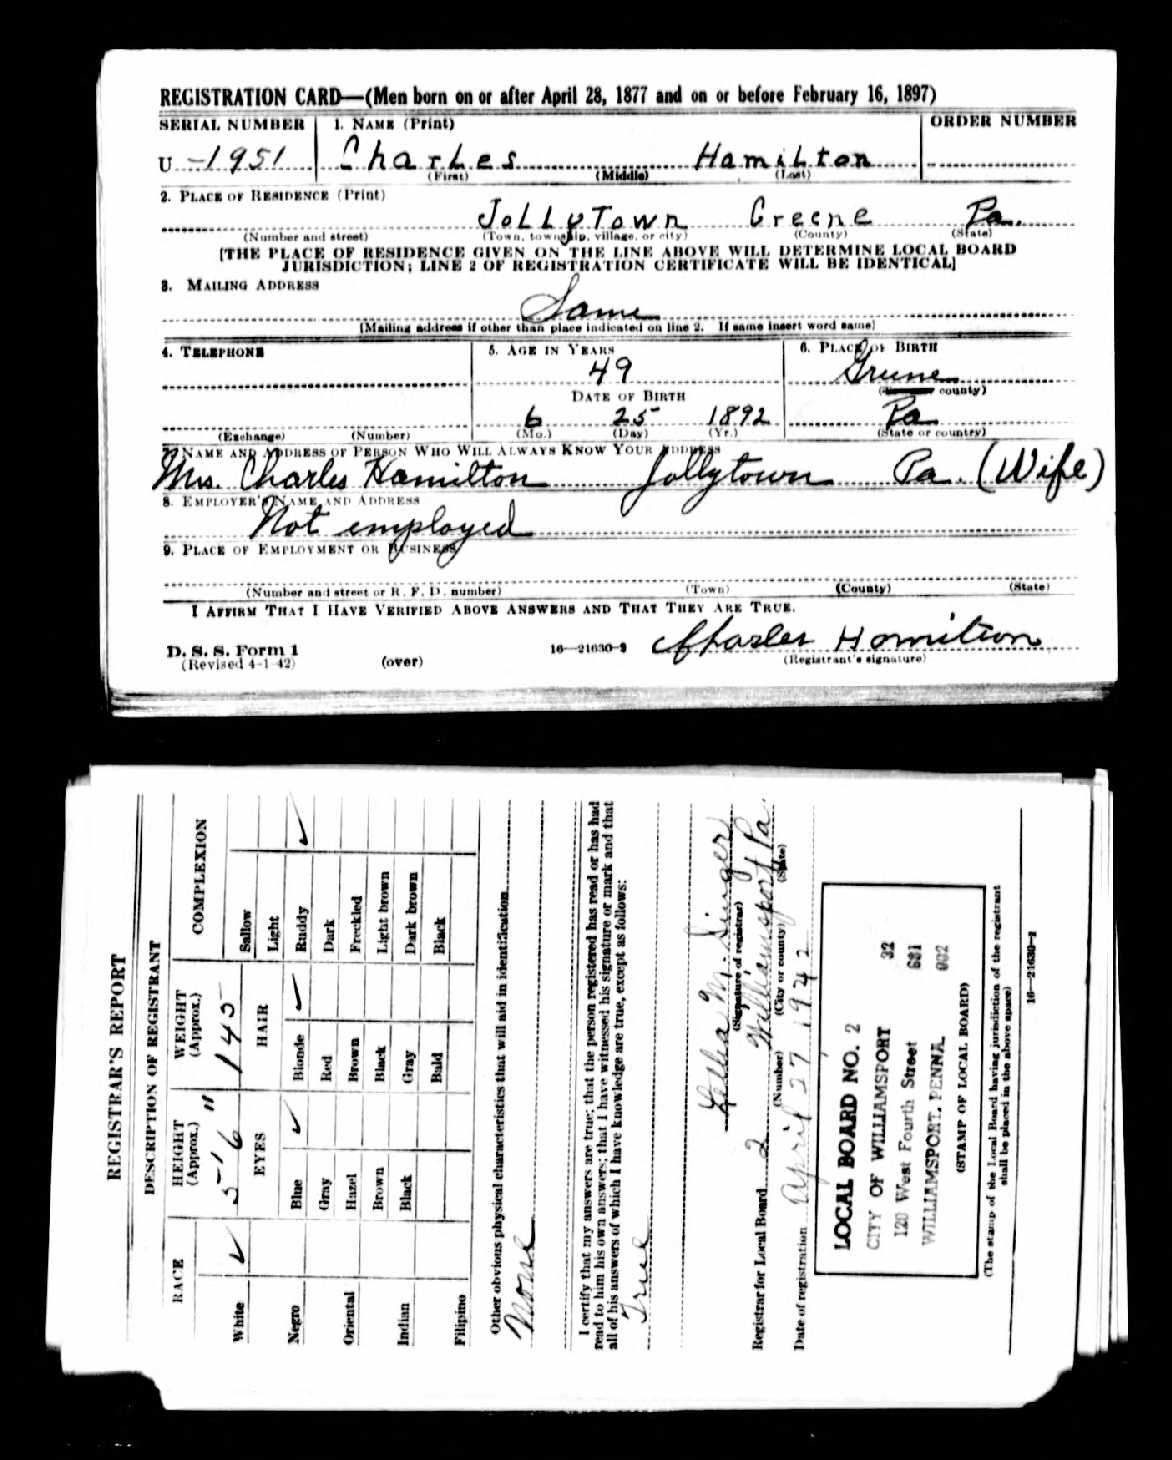 REGISTRATION CARD—(Men born on or after April 28, 1877 and on or before February 16, 1897)
SERIAL NUMBER 1. NAME (Print) ORDER NUMBER
U -1951 Charles Hamilton
(First) (Middle) (Last)
2. PLACE OF RESIDENCE (Print)
Jollytown Greene Pa.
(Number and street) (Town, township, village, or city) (County) (State)
[THE PLACE OF RESIDENCE GIVEN ON THE LINE ABOVE WILL DETERMINE LOCAL BOARD
JURISDICTION; LINE 2 OF REGISTRATION CERTIFICATE WILL BE IDENTICAL]
3. MAILING ADDRESS
Same
[Mailing address if other than place indicated on line 2. If same insert word same]
4. TELEPHONE 5. AGE IN YEARS 6. PLACE OF BIRTH
49 Greene
DATE OF BIRTH county)
6 25 1892 Pa
(Exchange) (Number) (Mo.) (Day) (Yr.) (State or country)
7. NAME AND ADDRESS OF PERSON WHO WILL ALWAYS KNOW YOUR ADDRESS
Mrs. Charles Hamilton Jollytown Pa. (Wife)
8. EMPLOYER'S NAME AND ADDRESS
Not employed
9. PLACE OF EMPLOYMENT OR BUSINESS
(Number and street or R. F. D. number) (Town) (County) (State)
I AFFIRM THAT I HAVE VERIFIED ABOVE ANSWERS AND THAT THEY ARE TRUE.
D. S. S. Form 1
(Revised 4-1-42) (over) 16—21630-2 Charles Hamilton
(Registrant's signature)
REGISTRAR'S REPORT
DESCRIPTION OF REGISTRANT
RACE HEIGHT (Approx.) WEIGHT (Approx.) COMPLEXION
White ✓ 5' 6" 145 Sallow
EYES HAIR Light
Negro Blue ✓ Blonde ✓ Ruddy ✓
Gray Red Dark
Oriental Hazel Brown Freckled
Brown Black Light brown
Indian Black Gray Dark brown
Bald Black
Filipino
Other obvious physical characteristics that will aid in identification
None
I certify that my answers are true; that the person registered has read or has had
read to him his own answers; that I have witnessed his signature or mark and that
all of his answers of which I have knowledge are true, except as follows:
True
M. Singer
(Signature of registrar)
Registrar for Local Board 2 Williamsport Pa.
(Number) (City or county) (State)
Date of registration April 27 1942
LOCAL BOARD NO. 2
CITY OF WILLIAMSPORT 32
120 West Fourth Street 681
WILLIAMSPORT, PENNA. 002
(STAMP OF LOCAL BOARD)
(The stamp of the Local Board having jurisdiction of the registrant
shall be placed in the above space)
16—21630-2